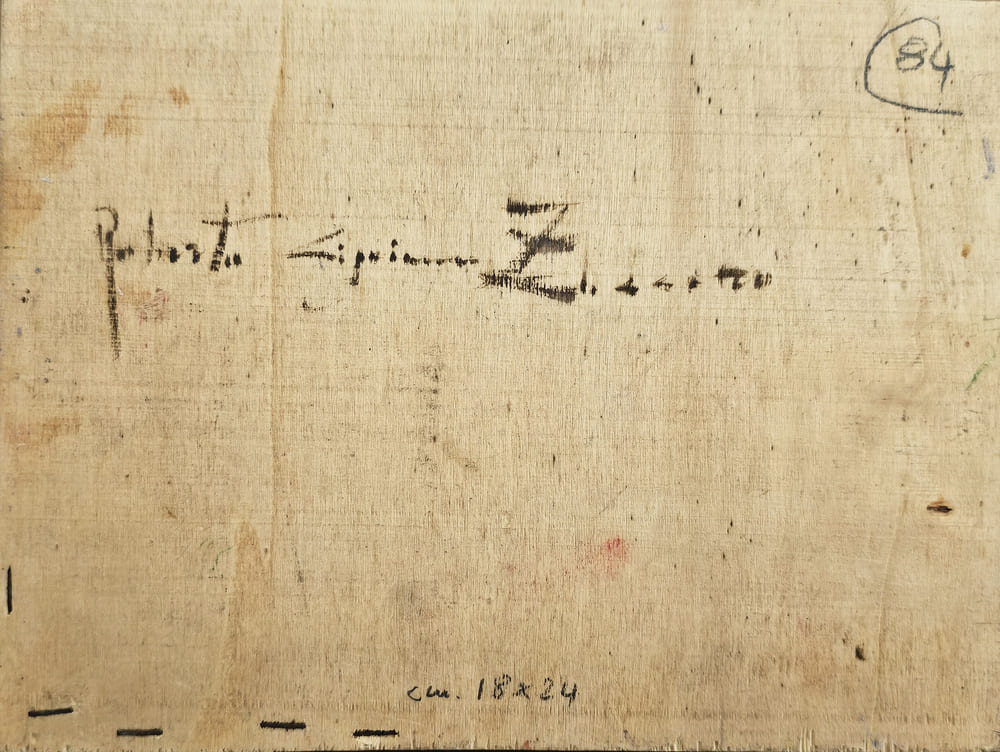 84
Roberto Cipriano
cm. 18x24